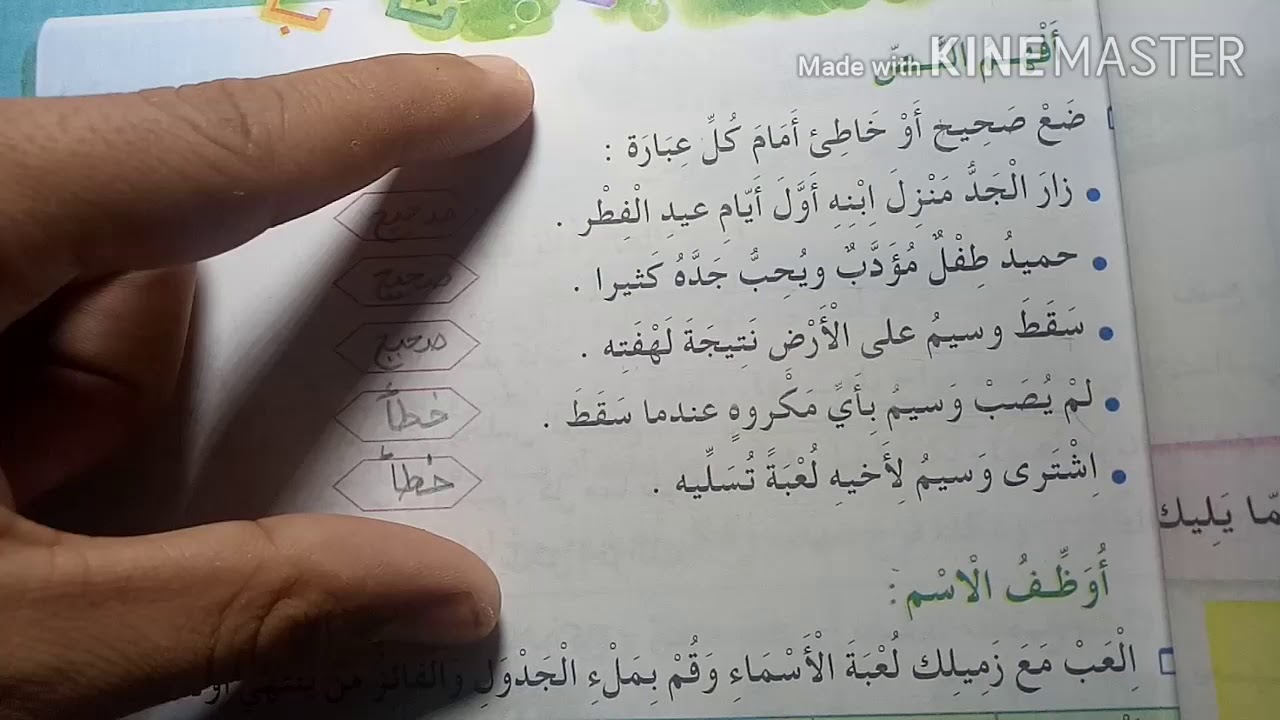 أَفْهَمُ النَّصَّ
Made with KINEMASTER
ضَعْ صَحِيح أَوْ خَاطِئ أَمَامَ كُلِّ عِبَارَة :
زارَ الْجَدُّ مَنْزِلَ اِبْنِهِ أَوَّلَ أَيّامِ عيدِ الْفِطْر . صحيح
حميدُ طِفْلٌ مُؤَدَّبٌ ويُحِبُّ جَدَّهُ كَثيرا . صحيح
سَقَطَ وسيمُ على الْأَرْضِ نَتيجَةَ لَهْفَتِه . صحيح
لمْ يُصَبْ وَسيمُ بِأَيِّ مَكْروهٍ عندما سَقَطَ . خطأ
اِشْتَرى وَسيمُ لِأَخيهِ لُعْبَةً تُسَلِّيه . خطأ
مّا يَلِيك
أُوَظِّفُ الْاسْم :
اِلْعَبْ مَعَ زَمِيلِك لُعْبَةَ الْأَسْمَاءِ وَقُمْ بِمَلْءِ الْجَدْوَلِ وَالفائز من ينتهي